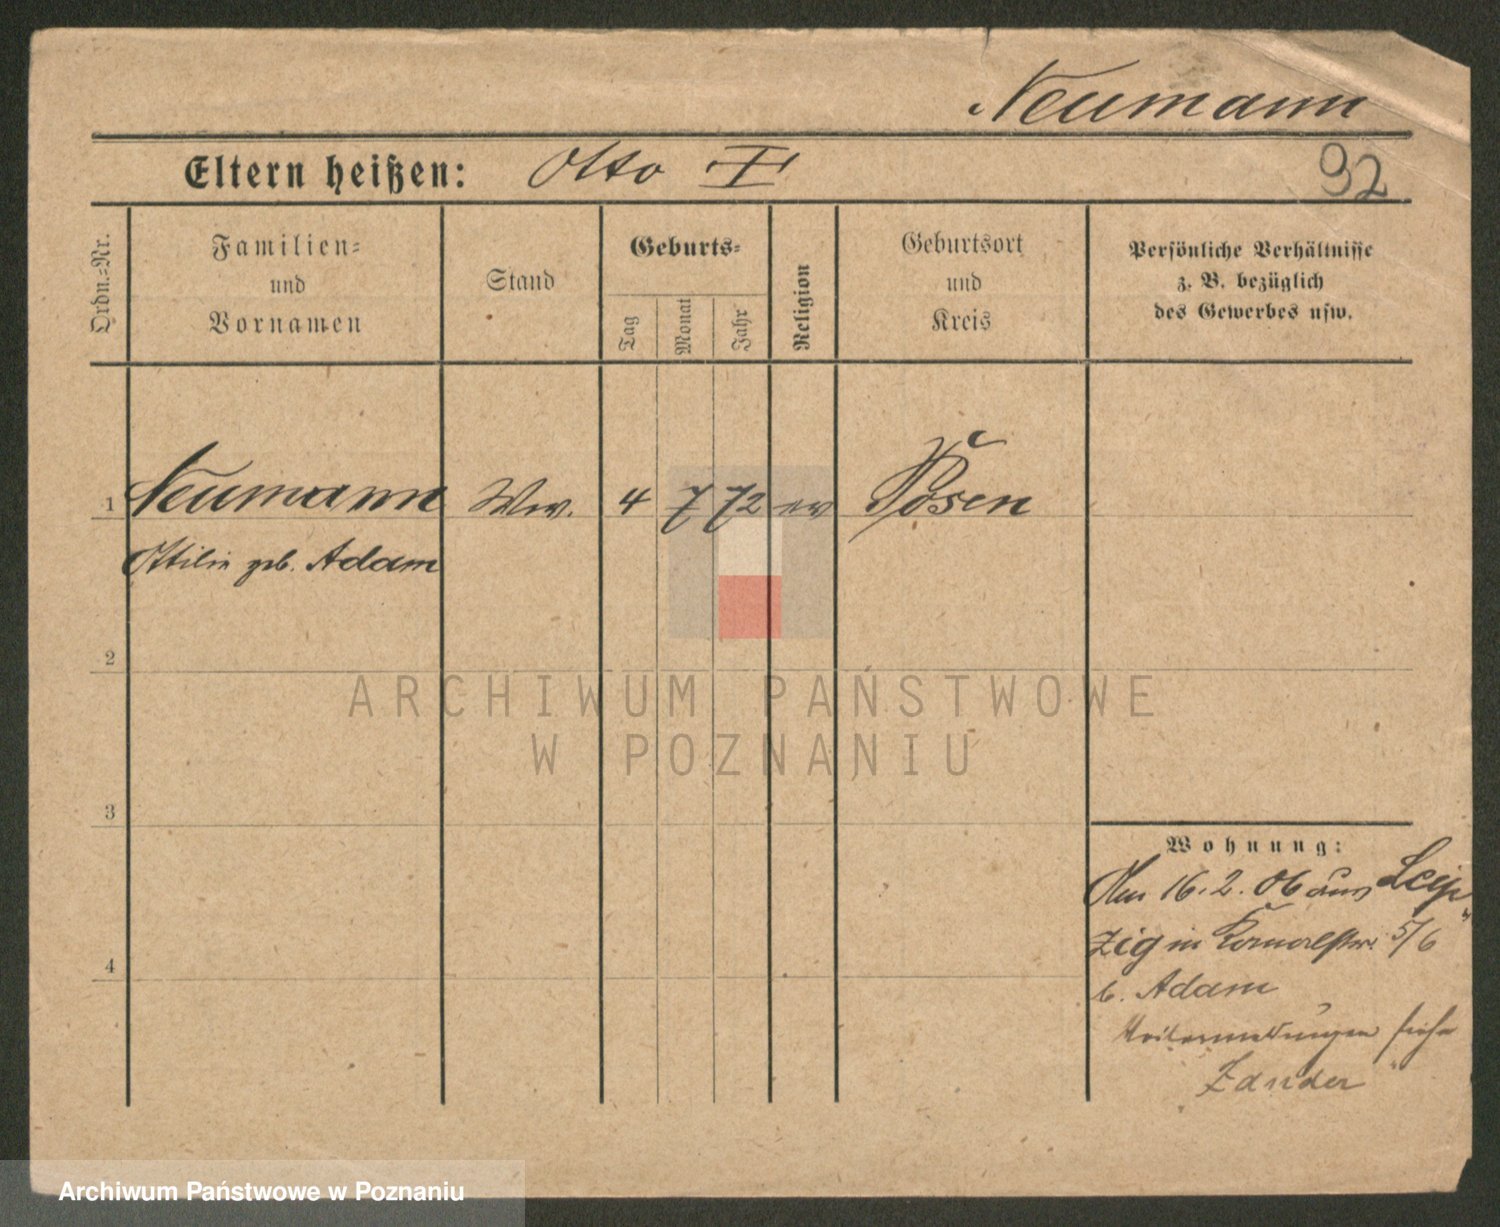 Neumann
Eltern heißen: Otto I
92
Ordn.-Nr.
Familien-
und
Vornamen
Stand
Geburts-
Tag
Monat
Jahr
Religion
Geburtsort
und
Kreis
Persönliche Verhältnisse
z. B. bezüglich
des Gewerbes usw.
1 Neumann Ww. 4 7 72 ev Posen
Ottilie geb. Adam
2
ARCHIWUM PAŃSTWOWE
W POZNANIU
3
Wohnung:
Am 16.2.06 aus Leip
4
zig in 5/6
b. Adam
Weitermeldungen siehe
Zander
Archiwum Państwowe w Poznaniu